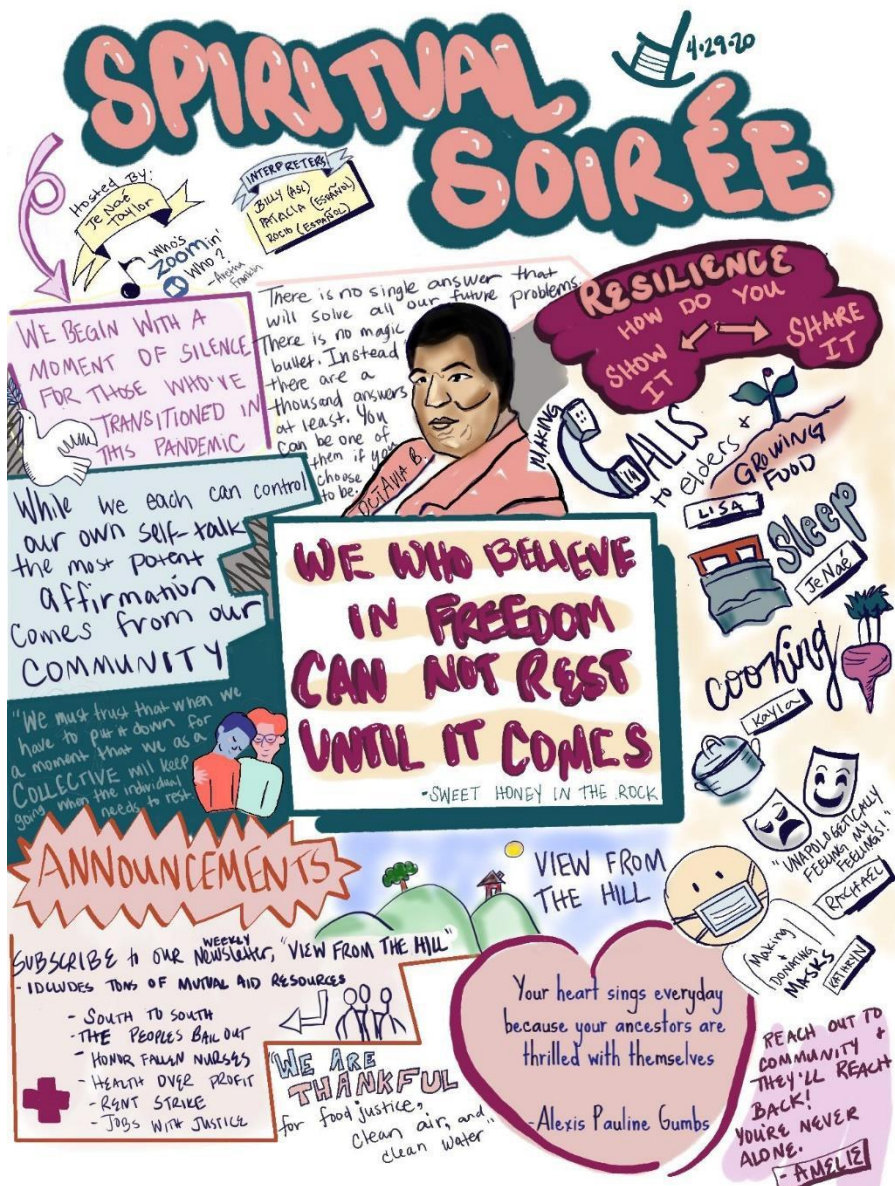 SPIRITUAL
SOIRÉE
4·29·20
Hosted By:
Je Naé
Taylor
INTERPRETERS
BILLY (ASL)
PATACIA (ESPAÑOL)
ROCIO (ESPAÑOL)
Who's
ZOOMin'
Who?
-Aretha
Franklin
WE BEGIN WITH A
MOMENT OF SILENCE
FOR THOSE WHO'VE
TRANSITIONED IN
THIS PANDEMIC
There is no single answer that
will solve all our future problems.
There is no magic
bullet. Instead
there are a
thousand answers
at least. You
can be one of
them if you
choose
to be.
OCTAVIA B.
RESILIENCE
HOW DO YOU
SHOW
IT
SHARE
IT
MAKING
CALLS
to elders &
GROWING
FOOD
LISA
Sleep
Je Naé
cooking
Kayla
"UNAPOLOGETICALLY
FEELING MY
FEELINGS!"
RACHAEL
Making
+
DONATING
MASKS
KATHRYN
While we each can control
our own self-talk
the most potent
affirmation
comes from our
COMMUNITY
"We must trust that when we
have to put it down for
a moment that we as a
COLLECTIVE will keep
going when the individual
needs to rest.
WE WHO BELIEVE
IN FREEDOM
CAN NOT REST
UNTIL IT COMES
-SWEET HONEY IN THE ROCK
ANNOUNCEMENTS
VIEW FROM
THE HILL
SUBSCRIBE to OUR WEEKLY Newsletter, "VIEW FROM THE HILL"
- IDCLUDES TONS OF MUTUAL AID RESOURCES
- SOUTH TO SOUTH
- THE PEOPLES BAIL OUT
- HONOR FALLEN NURSES
- HEALTH OVER PROFIT
- RENT STRIKE
- JOBS WITH JUSTICE
"WE ARE
THANKFUL
for food justice,
clean air, and
clean water"
Your heart sings everyday
because your ancestors are
thrilled with themselves
-Alexis Pauline Gumbs
REACH OUT TO
COMMUNITY &
THEY'LL REACH
BACK!
YOU'RE NEVER
ALONE.
- AMELIE